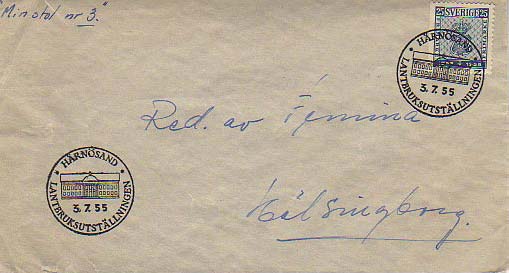 "Min stol nr 3."
25 SVERIGE 25
HÄRNÖSAND
3.7.55
LANTBRUKSUTSTÄLLNINGEN
Red. av Femina
Hälsingborg.
HÄRNÖSAND
3.7.55
LANTBRUKSUTSTÄLLNINGEN